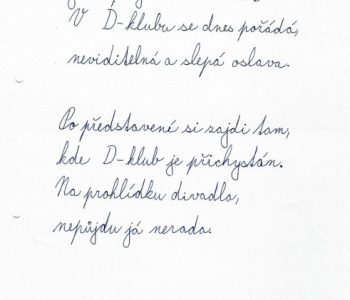 V D-klubu se dnes pořádá,
neviditelná a slepá oslava.
Po představené si zajdi tam,
kde D-klub je přichystán.
Na prohlídku divadla,
nepůjdu já nerada.